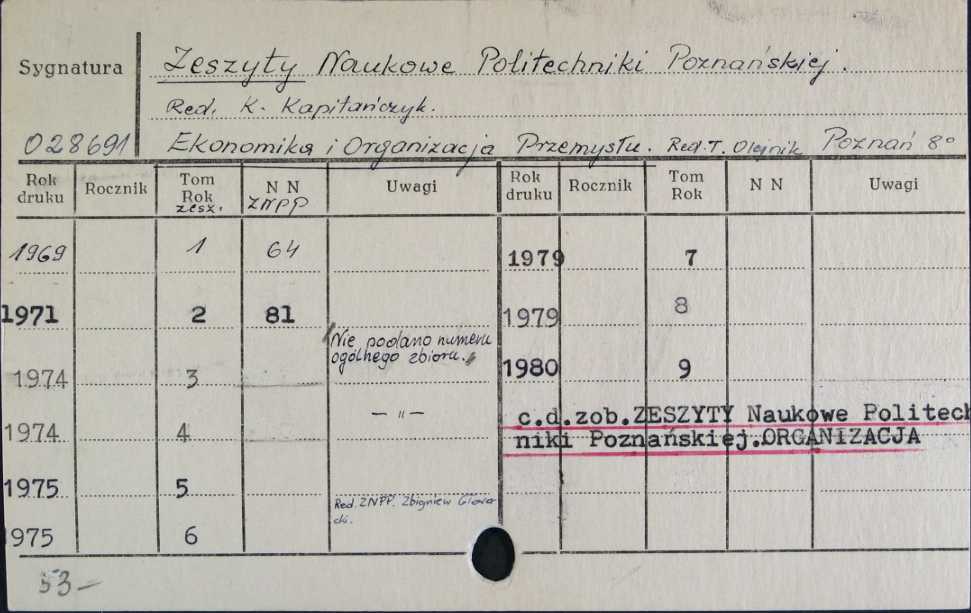 Sygnatura
Zeszyty Naukowe Politechniki Poznańskiej.
Red. K. Kapitańczyk.
028691 Ekonomika i Organizacja Przemysłu. Red. T. Olejnik Poznań 8°
Rok druku Rocznik Tom Rok zesz. N N ZNPP Uwagi Rok druku Rocznik Tom Rok N N Uwagi
1969 1 64 1979 7
1971 2 81 1979 8
Nie podano numeru
ogólnego zbioru.
1974 3 1980 9
1974 4 — " —
c.d.zob.ZESZYTY Naukowe Politech
niki Poznańskiej.ORGANIZACJA
1975 5
Red. ZNPP. Zbigniew
1975 6
53-